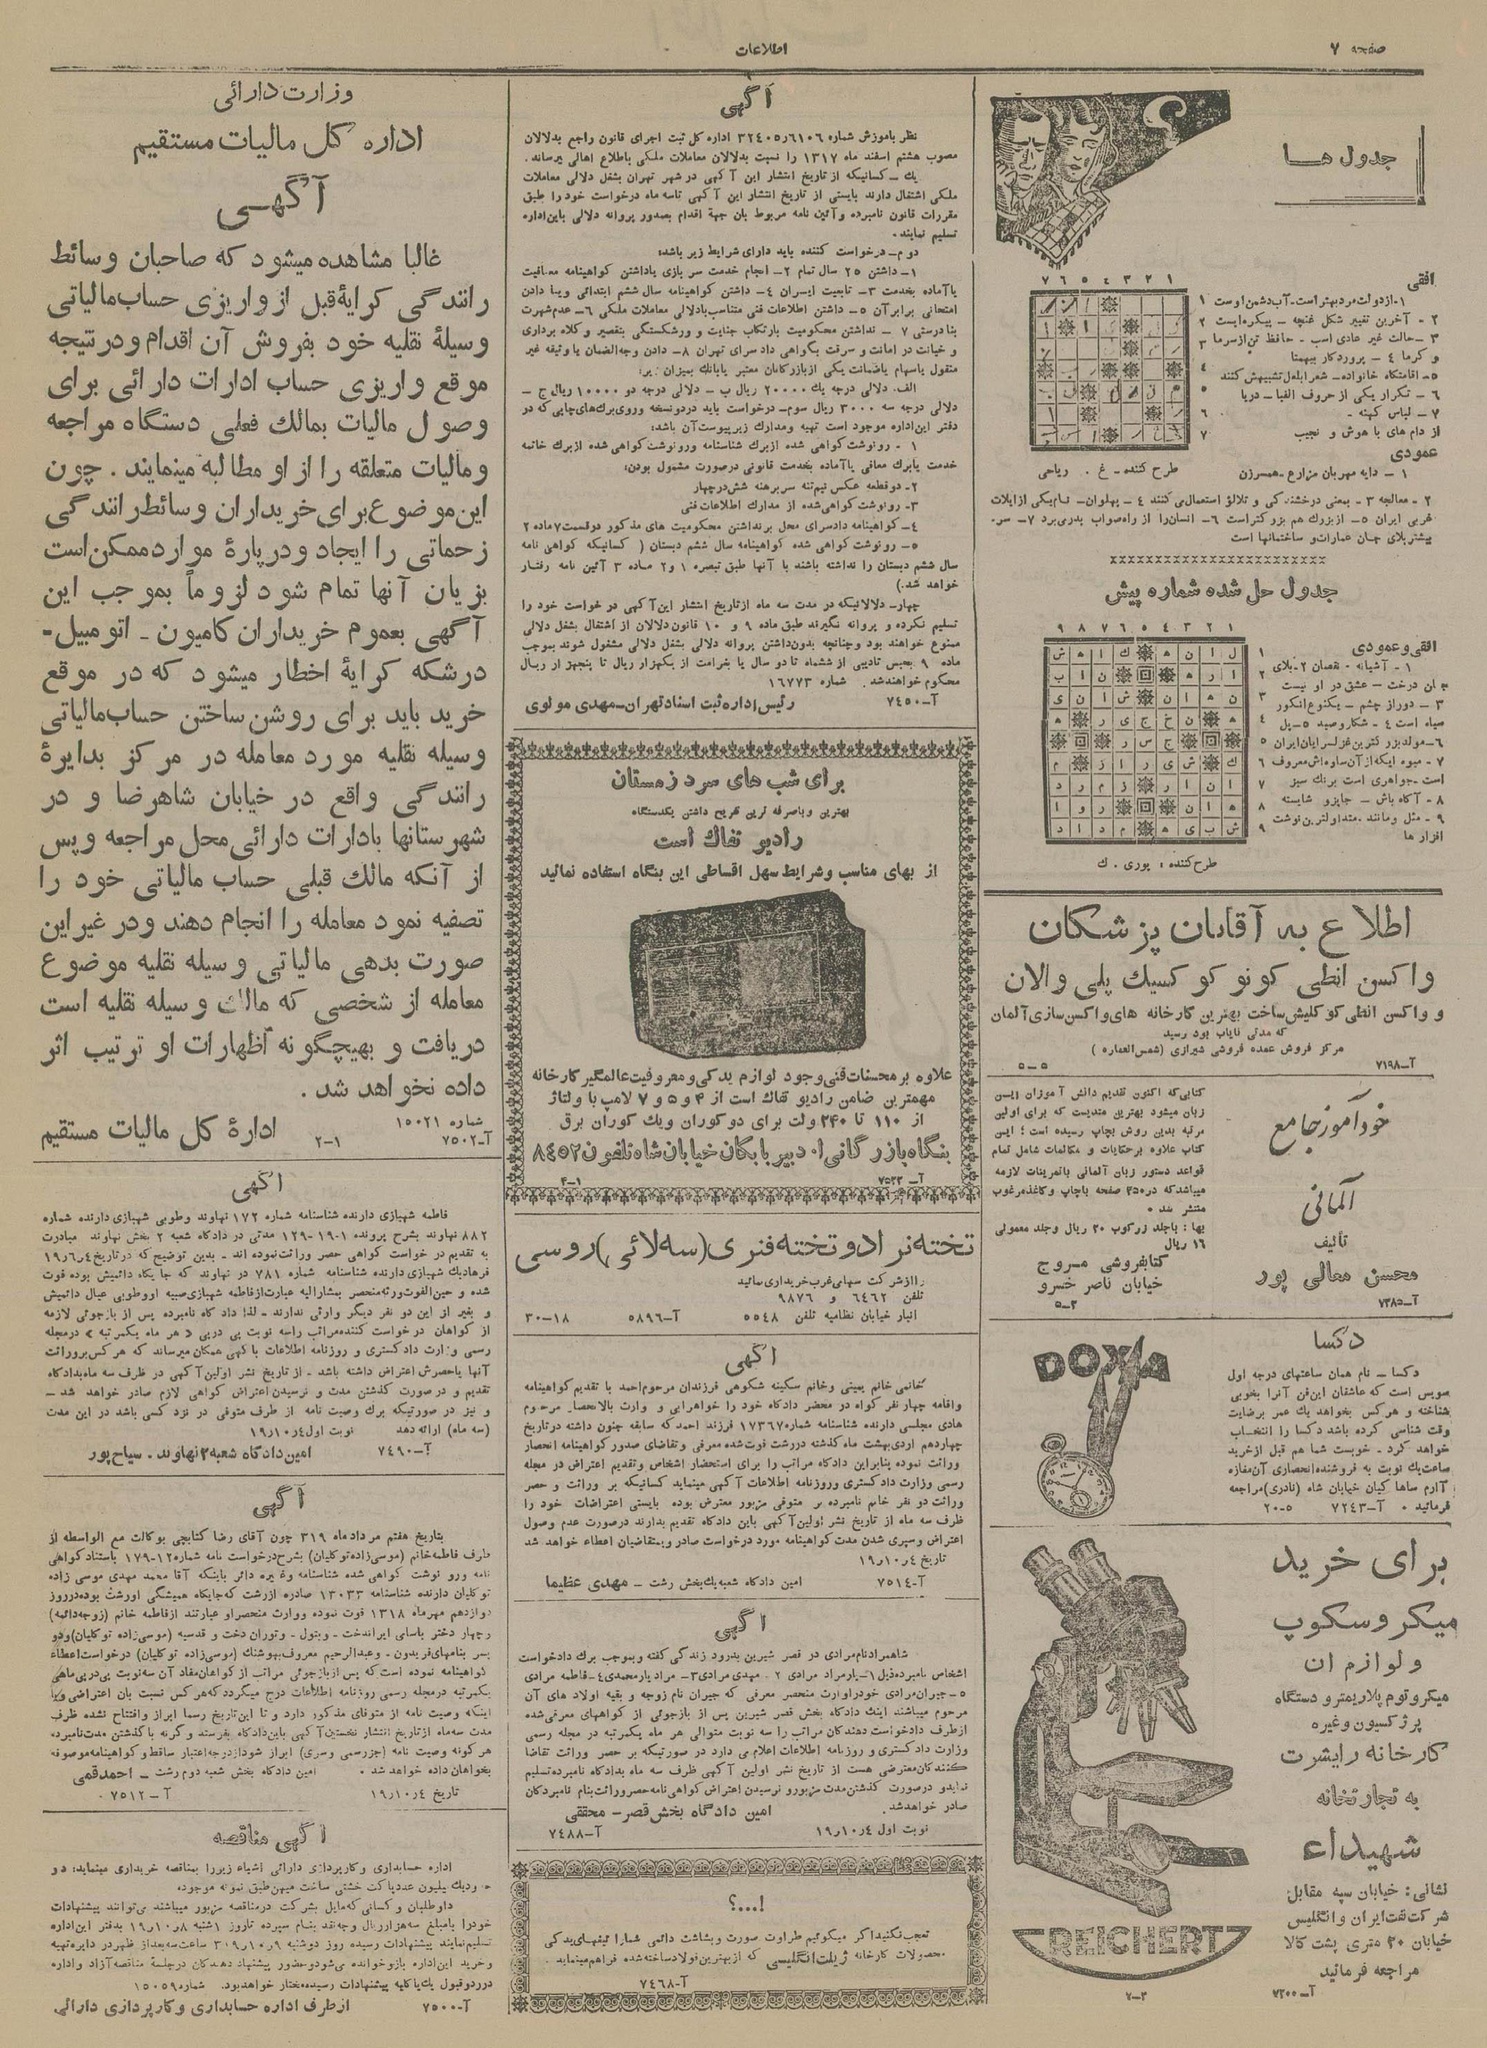 صفحه ۷
اطلاعات
جدول ها
۱ ۲ ۳ ۴ ۵ ۶ ۷
افقی
۱- از دولت مرد بهتر است - آب دشمن اوست
۲ - آخرین تغییر شکل غنچه - پیکره ایست
۳ - حالت غیر عادی اسب - حافظ تن از سرما
و گرما ۴ - پروردگار بیهمتا
۵- اقامتگاه خانواده - شعرا بلعل تشبیهش کنند
۶ - تکرار یکی از حروف الفبا - دریا
۷ - لباس کهنه -
از دام های با هوش و نجیب
عمودی
۱ - دایه مهربان مزارع - همسر زن
طرح کننده - غ . ریاحی
۲ - معالجه ۳ - بمعنی درخشندگی و تلالؤ استعمال می کنند ۴ - پهلوان - نام یکی از ایلات
غربی ایران ۵ - از بزرگ هم بزرگتر است ۶ - انسان را از راه صواب بدر می برد ۷ - سر -
بیشتر بلای جان عمارات و ساختمانها است
جدول حل شده شماره پیش
۱ ۲ ۳ ۴ ۵ ۶ ۷ ۸ ۹
افقی و عمودی
۱ - آشیانه - نقصان ۲ - بلای
جان درخت - عشق در او نیست
۳ - دور از چشم - یکنوع انگور
سیاه است ۴ - شکار و صید ۵ - پل
۶ - مولد بزرگترین غزلسرایان ایران
۷ - میوه ایکه از آن ساوه اش معروف
است - جواهری است برنگ سبز
۸ - آگاه باش - جایز و شایسته
۹ - مثل و مانند - متداولترین نوشت
افزار ها
طرح کننده : پوری . ك
اطلاع به آقایان پزشکان
واکسن انطی گونوکوکسیك پلی والان
و واکسن انطی کوکلیش ساخت بهترین کارخانه های واکسن سازی آلمان
که مدتی نایاب بود رسید
مرکز فروش عمده فروشی شیرازی (شمس العماره )
آ-۷۱۹۸
۵-۵
خودآموز جامع
آلمانی
تألیف
محسن معالی پور
آ-۷۳۸۵
کتابی که اکنون تقدیم دانش آموزان این
زبان میشود بهترین متدیست که برای اولین
مرتبه بدین روش بچاپ رسیده است ؛ این
کتاب علاوه بر حکایات و مکالمات شامل تمام
قواعد دستور زبان آلمانی با تمرینات لازمه
میباشد که در ۴۵۰ صفحه با چاپ و کاغذ مرغوب
منتشر شد .
بها : با جلد زرکوب ۲۰ ریال و جلد معمولی
۱۶ ریال
کتابفروشی مروج
خیابان ناصر خسرو
۳-۵
دکسا
DOXA
دکسا - نام همان ساعتهای درجه اول
سویس است که عاشقان این فن آنرا بخوبی
شناخته و هر کس بخواهد یك عمر برضایت
وقت شناسی کرده باشد دکسا را انتخاب
خواهد کرد . خوبست شما هم قبل از خرید
ساعت یك نوبت به فروشنده انحصاری آن مغازه
آارم ساها کیان خیابان شاه (نادری) مراجعه
فرمائید . آ-۷۲۴۳ ۵-۲۰
برای خرید
میکروسکوپ
و لوازم آن
میکروتوم پلاریمتر و دستگاه
پرژکسیون و غیره
کارخانه رایشرت
به تجارتخانه
شهیداء
نشانی : خیابان سپه مقابل
شرکت نفت ایران و انگلیس
خیابان ۲۰ متری پشت کالا
مراجعه فرمائید
آ-۷۲۰۰
REICHERT
آگهی
نظر بآموزش شماره ۳۲۴۰۵ر۶۱۰۶ اداره کل ثبت اجرای قانون راجع بدلالان
مصوب هشتم اسفند ماه ۱۳۱۷ را نسبت بدلالان معاملات ملکی باطلاع اهالی میرساند .
یك - کسانیکه از تاریخ انتشار این آگهی در شهر تهران بشغل دلالی معاملات
ملکی اشتغال دارند بایستی از تاریخ انتشار این آگهی تا سه ماه درخواست خود را طبق
مقررات قانون نامبرده و آئین نامه مربوط بان جهة اقدام بصدور پروانه دلالی باین اداره
تسلیم نمایند .
دوم - درخواست کننده باید دارای شرایط زیر باشد :
۱- داشتن ۲۵ سال تمام ۲- انجام خدمت سربازی یا داشتن گواهینامه معافیت
یا آماده بخدمت ۳- تابعیت ایران ۴- داشتن گواهینامه سال ششم ابتدائی و یا دادن
امتحانی برابر آن ۵- داشتن اطلاعات فنی متناسب با دلالی معاملات ملکی ۶- عدم شهرت
بنادرستی ۷ - نداشتن محکومیت بارتکاب جنایت و ورشکستگی بتقصیر و کلاه برداری
و خیانت در امانت و سرقت بگواهی دادسرای تهران ۸- دادن وجه الضمان یا وثیقه غیر
منقول یا سهام یا ضمانت یکی از بازرگانان معتبر یا بانك بمیزان زیر :
الف. دلالی درجه یك ۲۰۰۰۰ ریال ب - دلالی درجه دو ۱۰۰۰۰ ریال ج -
دلالی درجه سه ۳۰۰۰ ریال سوم - درخواست باید در دو نسخه و روی برك های چاپی که در
دفتر این اداره موجود است تهیه و مدارك زیر پیوست آن باشد :
۱ - رونوشت گواهی شده از برك شناسنامه و رونوشت گواهی شده از برك خاتمه
خدمت یا برك معافی یا آماده بخدمت قانونی در صورت مشمول بودن :
۲- دو قطعه عکس نیم تنه سر برهنه شش در چهار
۳- رونوشت گواهی شده از مدارك اطلاعات فنی
۴- گواهینامه دادسرای محل بر نداشتن محکومیت های مذکور در قسمت ۷ ماده ۲
۵- رونوشت گواهی شده گواهینامه سال ششم دبستان ( کسانیکه گواهی نامه
سال ششم دبستان را نداشته باشند با آنها طبق تبصره ۱ و ۲ ماده ۳ آئین نامه رفتار
خواهد شد .)
چهار - دلالانیکه در مدت سه ماه از تاریخ انتشار این آگهی درخواست خود را
تسلیم نکرده و پروانه نگیرند طبق ماده ۹ و ۱۰ قانون دلالان از اشتغال بشغل دلالی
ممنوع خواهند بود و چنانچه بدون داشتن پروانه دلالی بشغل دلالی مشغول شوند بموجب
ماده ۹ بحبس تادیبی از ششماه تا دو سال یا بغرامت از یکهزار ریال تا پنجهزار ریال
محکوم خواهند شد . شماره ۱۶۷۷۳
آ-۷۴۵۰ رئیس اداره ثبت اسناد تهران - مهدی مولوی
برای شب های سرد زمستان
بهترین و باصرفه ترین تفریح داشتن یکدستگاه
رادیو تفاك است
از بهای مناسب و شرایط سهل اقساطی این بنگاه استفاده نمائید
علاوه بر محسنات فنی وجود لوازم یدکی و معروفیت عالمگیر کارخانه
مهمترین ضامن رادیو تفاك است از ۴ و ۵ و ۷ لامپ با ولتاژ
از ۱۱۰ تا ۲۴۰ ولت برای دو کوران و یك کوران برق
بنگاه بازرگانی ا. دبیر بابکان خیابان شاه تلفون ۸۴۵۲
تخته نراد و تخته فنری (سه لائی) روسی
را از شرکت سهامی غرب خریداری نمائید
تلفن ۶۴۶۲ و ۹۸۷۶
انبار خیابان نظامیه تلفن ۵۵۴۸ آ-۵۸۹۶ ۱۸-۳۰
آگهی
خانمی خانم یمینی و خانم سکینه شکوهی فرزندان مرحوم احمد با تقدیم گواهینامه
و اقامه چهار نفر گواه در محضر دادگاه خود را خواهر ابی و وارث بالانحصار مرحوم
هادی مجلسی دارنده شناسنامه شماره ۱۷۳۶۷ فرزند احمد که سابقه جنون داشته در تاریخ
چهاردهم اردیبهشت ماه گذشته در رشت فوت شده معرفی و تقاضای صدور گواهینامه انحصار
وراثت نموده بنابراین دادگاه مراتب را برای استحضار اشخاص و تقدیم اعتراض در مجله
رسمی وزارت دادگستری و روزنامه اطلاعات آگهی مینماید کسانیکه بر وراثت و حصر
وراثت دو نفر خانم نامبرده بر متوفی مزبور معترض بوده بایستی اعتراضات خود را
ظرف سه ماه از تاریخ نشر اولین آگهی باین دادگاه تقدیم بدارند در صورت عدم وصول
اعتراض و سپری شدن مدت گواهینامه مورد درخواست صادر و بمتقاضیان اعطاء خواهد شد
تاریخ ۴ر۱۰ر۱۹
آ-۷۵۱۴ امین دادگاه شعبه یك بخش رشت - مهدی عظیما
آگهی
شاهمراد نام مرادی در قصر شیرین بدرود زندگی گفته و بموجب برك دادخواست
اشخاص نامبرده ذیل ۱- یارمراد مرادی ۲ - مهدی مرادی ۳- مراد یار محمدی ۴- فاطمه مرادی
۵- جیران مرادی خود را وارث منحصر معرفی که جیران نام زوجه و بقیه اولاد های آن
مرحوم میباشند اینك دادگاه بخش قصر شیرین پس از بازجوئی از گواههای معرفی شده
از طرف دادخواست دهندگان مراتب را سه نوبت متوالی هر ماه یکمرتبه در مجله رسمی
وزارت دادگستری و روزنامه اطلاعات اعلام می دارد در صورتیکه بر حصر وراثت تقاضا
کنندگان معترضی هست از تاریخ نشر اولین آگهی ظرف سه ماه بدادگاه نامبرده تسلیم
نماید و در صورت گذشتن مدت مزبور و نرسیدن اعتراض گواهی نامه حصر وراثت بنام نامبردگان
صادر خواهد شد .
امین دادگاه بخش قصر - محققی
نوبت اول ۴ر۱۰ر۱۹ آ-۷۴۸۸
!...؟
تعجب نکنید اگر میگوئیم طراوت صورت و بشاشت دائمی شما را تیغهای یدکی
محصولات کارخانه ژیلت انگلیسی که از بهترین فولاد ساخته شده فراهم مینماید .
آ-۷۴۶۸
وزارت دارائی
اداره کل مالیات مستقیم
آگهی
غالبا مشاهده میشود که صاحبان وسائط
رانندگی کرایهٔ قبل از واریزی حساب مالیاتی
وسیلهٔ نقلیه خود بفروش آن اقدام و در نتیجه
موقع واریزی حساب ادارات دارائی برای
وصول مالیات بمالك فعلی دستگاه مراجعه
و مالیات متعلقه را از او مطالبه مینمایند . چون
این موضوع برای خریداران وسائط رانندگی
زحماتی را ایجاد و در پارهٔ موارد ممکن است
بزیان آنها تمام شود لزوماً بموجب این
آگهی بعموم خریداران کامیون - اتومبیل -
درشکه کرایهٔ اخطار میشود که در موقع
خرید باید برای روشن ساختن حساب مالیاتی
وسیله نقلیه مورد معامله در مرکز بدایرهٔ
رانندگی واقع در خیابان شاهرضا و در
شهرستانها بادارات دارائی محل مراجعه و پس
از آنکه مالك قبلی حساب مالیاتی خود را
تصفیه نمود معامله را انجام دهند و در غیر این
صورت بدهی مالیاتی وسیله نقلیه موضوع
معامله از شخصی که مالك وسیله نقلیه است
دریافت و بهیچگونه اظهارات او ترتیب اثر
داده نخواهد شد .
شماره ۱۵۰۲۱
آ-۷۵۰۲ ۱-۲ ادارهٔ کل مالیات مستقیم
آگهی
فاطمه شهبازی دارنده شناسنامه شماره ۱۷۲ نهاوند و طوبی شهبازی دارنده شماره
۸۸۲ نهاوند بشرح پرونده ۱-۱۹-۱۲۹ مدنی در دادگاه شعبه ۲ بخش نهاوند مبادرت
به تقدیم درخواست گواهی حصر وراثت نموده اند - بدین توضیح که در تاریخ ۴ر۶ر۱۹
فرهاد بك شهبازی دارنده شناسنامه شماره ۷۸۱ در نهاوند که جایگاه دائمیش بوده فوت
شده و حین الفوت ورثه منحصر بمشارالیه عبارت از فاطمه شهبازی صبیه او و طوبی عیال دائمیش
و بغیر از این دو نفر دیگر وارثی ندارند - لذا دادگاه نامبرده پس از بازجوئی لازمه
از گواهان درخواست کننده مراتب را سه نوبت پی در پی « هر ماه یکمرتبه » در مجله
رسمی وزارت دادگستری و روزنامه اطلاعات باگهی همگان میرساند که هر کس بر وراثت
آنها یا حصرش اعتراض داشته باشد - از تاریخ نشر اولین آگهی در ظرف سه ماه بدادگاه
تقدیم و در صورت گذشتن مدت و نرسیدن اعتراض گواهی لازم صادر خواهد شد -
و نیز در صورتیکه برك وصیت نامه از طرف متوفی در نزد کسی باشد در این مدت
(سه ماه) ارائه دهد نوبت اول ۴ر۱۰ر۱۹
آ-۷۴۹۰ امین دادگاه شعبه ۲ نهاوند . سیاح پور
آگهی
بتاریخ هفتم مرداد ماه ۳۱۹ چون آقای رضا کتابچی بوکالت مع الواسطه از
طرف فاطمه خانم (موسی زاده توکلیان) بشرح درخواست نامه شماره ۱۲-۱۷۹ باستناد گواهی
نامه و رونوشت گواهی شده شناسنامه و غیره دائر باینکه آقا محمد مهدی موسی زاده
توکلیان دارنده شناسنامه ۱۳۰۳۳ صادره از رشت که جایگاه همیشگی او رشت بوده در روز
دوازدهم مهرماه ۱۳۱۸ فوت نموده و وراث منحصر او عبارتند از فاطمه خانم (زوجه دائمه)
و چهار دختر باسامی ایراندخت - وبتول - وتوران دخت و قدسیه (موسی زاده توکلیان) و دو
پسر بنامهای فریدون - و عبدالرحیم معروف بهوشنك (موسی زاده توکلیان) درخواست اعطاء
گواهینامه نموده است که پس از بازجوئی مراتب از گواهان مفاد آن سه نوبت پی در پی ماهی
یکمرتبه در مجله رسمی روزنامه اطلاعات درج میگردد که هر کس نسبت بان اعتراضی و یا
اینکه وصیت نامه از متوفای مذکور دارد و تا این تاریخ رسما ابراز و افتتاح نشده ظرف
مدت سه ماه از تاریخ انتشار نخستین آگهی باین دادگاه بفرستد و گرنه با گذشتن مدت نامبرده
هر گونه وصیت نامه (جز رسمی و سری) ابراز شود از درجه اعتبار ساقط و گواهینامه موصوفه
بخواهان داده خواهد شد . امین دادگاه بخش شعبه دوم رشت - احمد قمی
تاریخ ۴ر۱۰ر۱۹ آ-۷۵۱۲
آگهی مناقصه
اداره حسابداری و کارپردازی دارائی اشیاء زیر را بمناقصه خریداری مینماید : دو
دودیك میلیون عدد پاکت خشتی ساخت میهن طبق نمونه موجوده
داوطلبان و کسانی که مایل بشرکت در مناقصه مزبور میباشند می توانند پیشنهادات
خود را با مبلغ سه هزار ریال وجه نقد بنام سپرده تا روز ۱ شنبه ۸ر۱۰ر۱۹ بدفتر این اداره
تسلیم نمایند پیشنهادات رسیده روز دوشنبه ۹ر۱۰ر۳۱۹ ساعت سه بعد از ظهر در دایره تهیه
و خرید این اداره باز و خوانده می شود و حضور پیشنهاد دهندگان در جلسهٔ مناقصه آزاد و اداره
در رد و قبول یك یا کلیه پیشنهادات رسیده مختار خواهد بود. شماره ۱۵۰۵۹
آ-۷۵۰۰ از طرف اداره حسابداری و کارپردازی دارائی